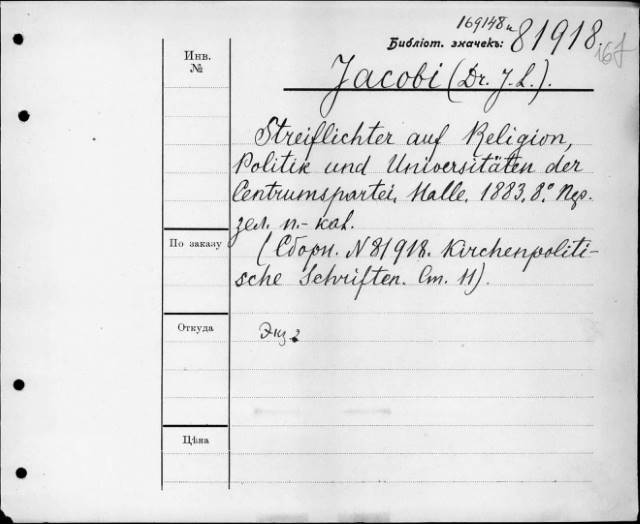 169148 и
Библіот. значекъ: 81918.
16f
Инв.
№
Jacobi (Dr. J. L.).
Streiflichter auf Religion,
Politik und Universitäten der
Centrumspartei. Halle. 1883. 8.° Пер.
зел. п.-кал.
По заказу
(Сборн. N 81918. Kirchenpoliti-
sche Schriften. Ст. 11).
Откуда
Экз. 2
Цѣна